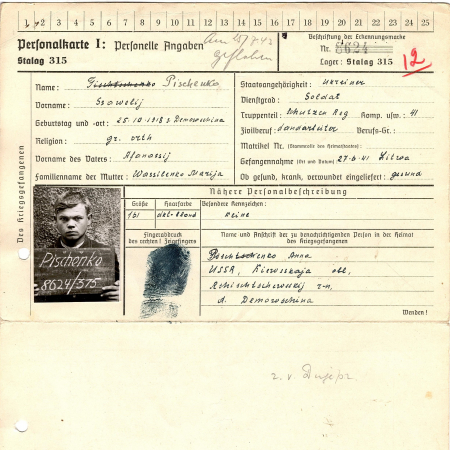 1 2 3 4 5 6 7 8 9 10 11 12 13 14 15 16 17 18 19 20 21 22 23 24 25
Personalkarte I: Personelle Angaben
Am 25/7.42
geflohen
Beschriftung der Erkennungsmarke
Nr. 8624
Stalag 315
Lager: Stalag 315
12
Des Kriegsgefangenen
Name: Pischenko
Vorname:
Geburtstag und -ort: 25.10.1918 Demowschina
Religion: gr. orth
Vorname des Vaters: Afanassij
Familienname der Mutter: Wassilenko Marija
Staatsangehörigkeit: Ukreiner
Dienstgrad: Soldat
Truppenteil: Schutzen Reg Komp. usw.: 41
Zivilberuf: Landarbeiter Berufs-Gr.:
Matrikel Nr. (Stammrolle des Heimatstaates):
Gefangennahme (Ort und Datum): 27-6-41 Litwa
Ob gesund, krank, verwundet eingeliefert: gesund
Nähere Personalbeschreibung
Größe
Haarfarbe
Besondere Kennzeichen:
dkl-blond
Keine
Fingerabdruck
des rechten! Zeigefingers
Name und Anschrift der zu benachrichtigenden Person in der Heimat
des Kriegsgefangenen
Pischenko
8624/315
Anna
USSR, Kiewskaja obl,
r-n,
d. Demowschina
Wenden!